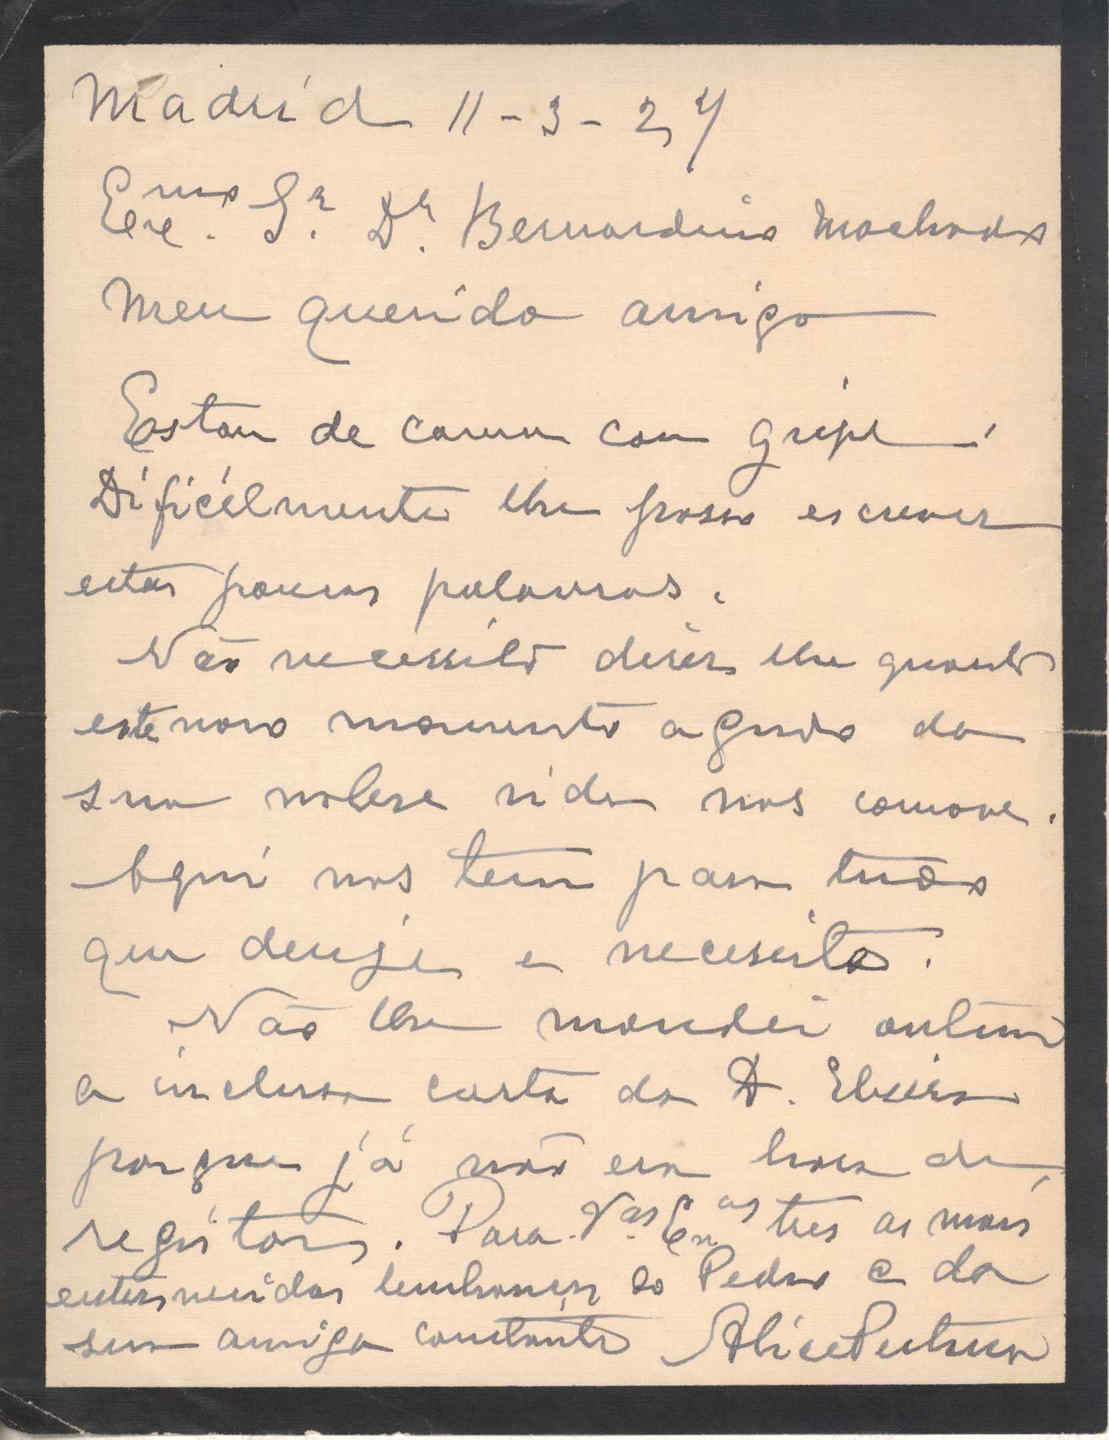 Madrid 11-3-27
Exc.mo Sr. Dr. Bernardino Machado
Meu querido amigo
Estou de cama com gripe.
Dificilmente lhe posso escrever
estas poucas palavras.
Não necessito dizer lhe quanto
este novo momento agudo da
sua nobre vida nos comove.
Aqui nos tem para tudo
que deseje e necesite.
Não lhe mandei ontem
a inclusa carta da D. Elvira
porque já não era hora de
registos. Para V.as Ex.as tres as mais
enternecidas lembranças do Pedro e da
sua amiga constante Alice Pestana